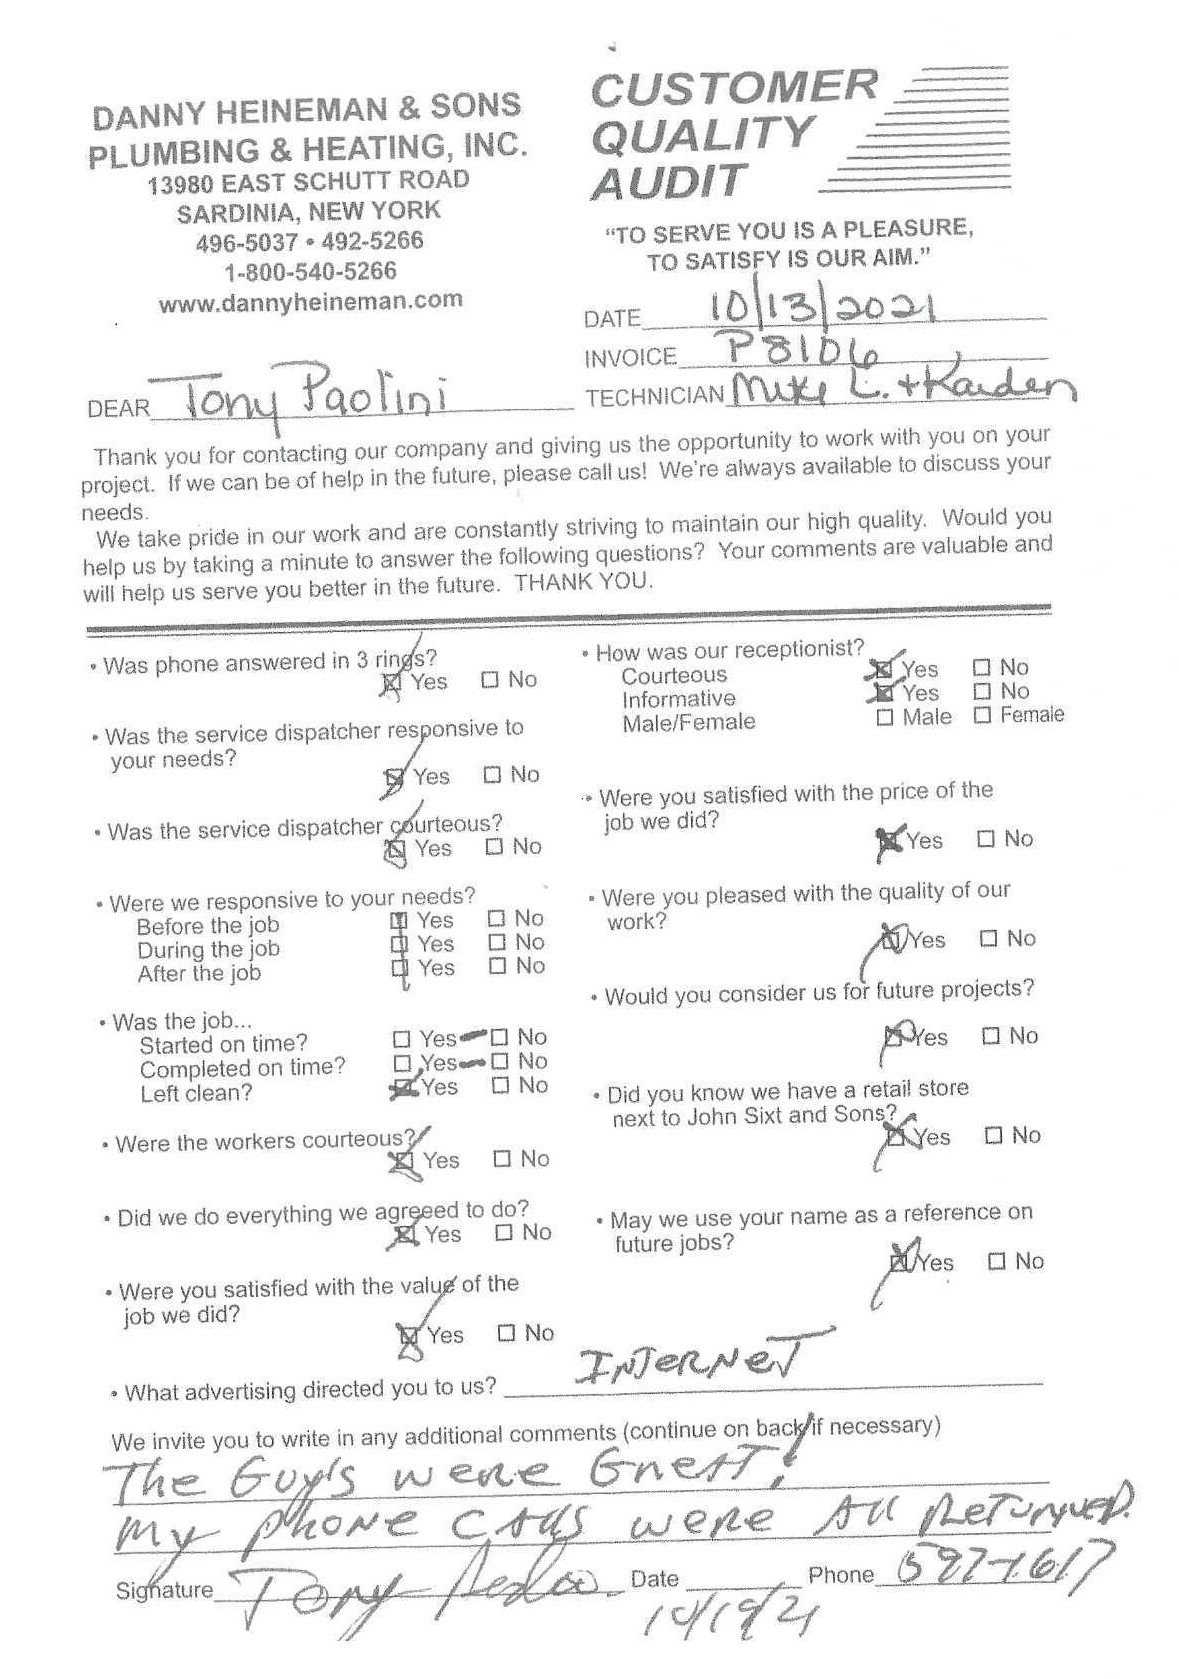 DANNY HEINEMAN & SONS
PLUMBING & HEATING, INC.
13980 EAST SCHUTT ROAD
SARDINIA, NEW YORK
496-5037 • 492-5266
1-800-540-5266
www.dannyheineman.com
CUSTOMER
QUALITY
AUDIT
"TO SERVE YOU IS A PLEASURE,
TO SATISFY IS OUR AIM."
DATE 10/13/2021
INVOICE P8106
TECHNICIAN Mike L. + Kaiden
DEAR Tony Paolini
Thank you for contacting our company and giving us the opportunity to work with you on your
project. If we can be of help in the future, please call us! We're always available to discuss your
needs.
We take pride in our work and are constantly striving to maintain our high quality. Would you
help us by taking a minute to answer the following questions? Your comments are valuable and
will help us serve you better in the future. THANK YOU.
• Was phone answered in 3 rings?
Yes No
• Was the service dispatcher responsive to
your needs?
Yes No
• Was the service dispatcher courteous?
Yes No
• Were we responsive to your needs?
Before the job Yes No
During the job Yes No
After the job Yes No
• Was the job...
Started on time? Yes No
Completed on time? Yes No
Left clean? Yes No
• Were the workers courteous?
Yes No
• Did we do everything we agreeed to do?
Yes No
• Were you satisfied with the value of the
job we did?
Yes No
• How was our receptionist?
Courteous Yes No
Informative Yes No
Male/Female Male Female
• Were you satisfied with the price of the
job we did?
Yes No
• Were you pleased with the quality of our
work?
Yes No
• Would you consider us for future projects?
Yes No
• Did you know we have a retail store
next to John Sixt and Sons?
Yes No
• May we use your name as a reference on
future jobs?
Yes No
• What advertising directed you to us? INTERNET
We invite you to write in any additional comments (continue on back if necessary)
The Guy's were Great!
My phone calls were all returned.
Signature Tony Date 10/19/21 Phone 597-1617